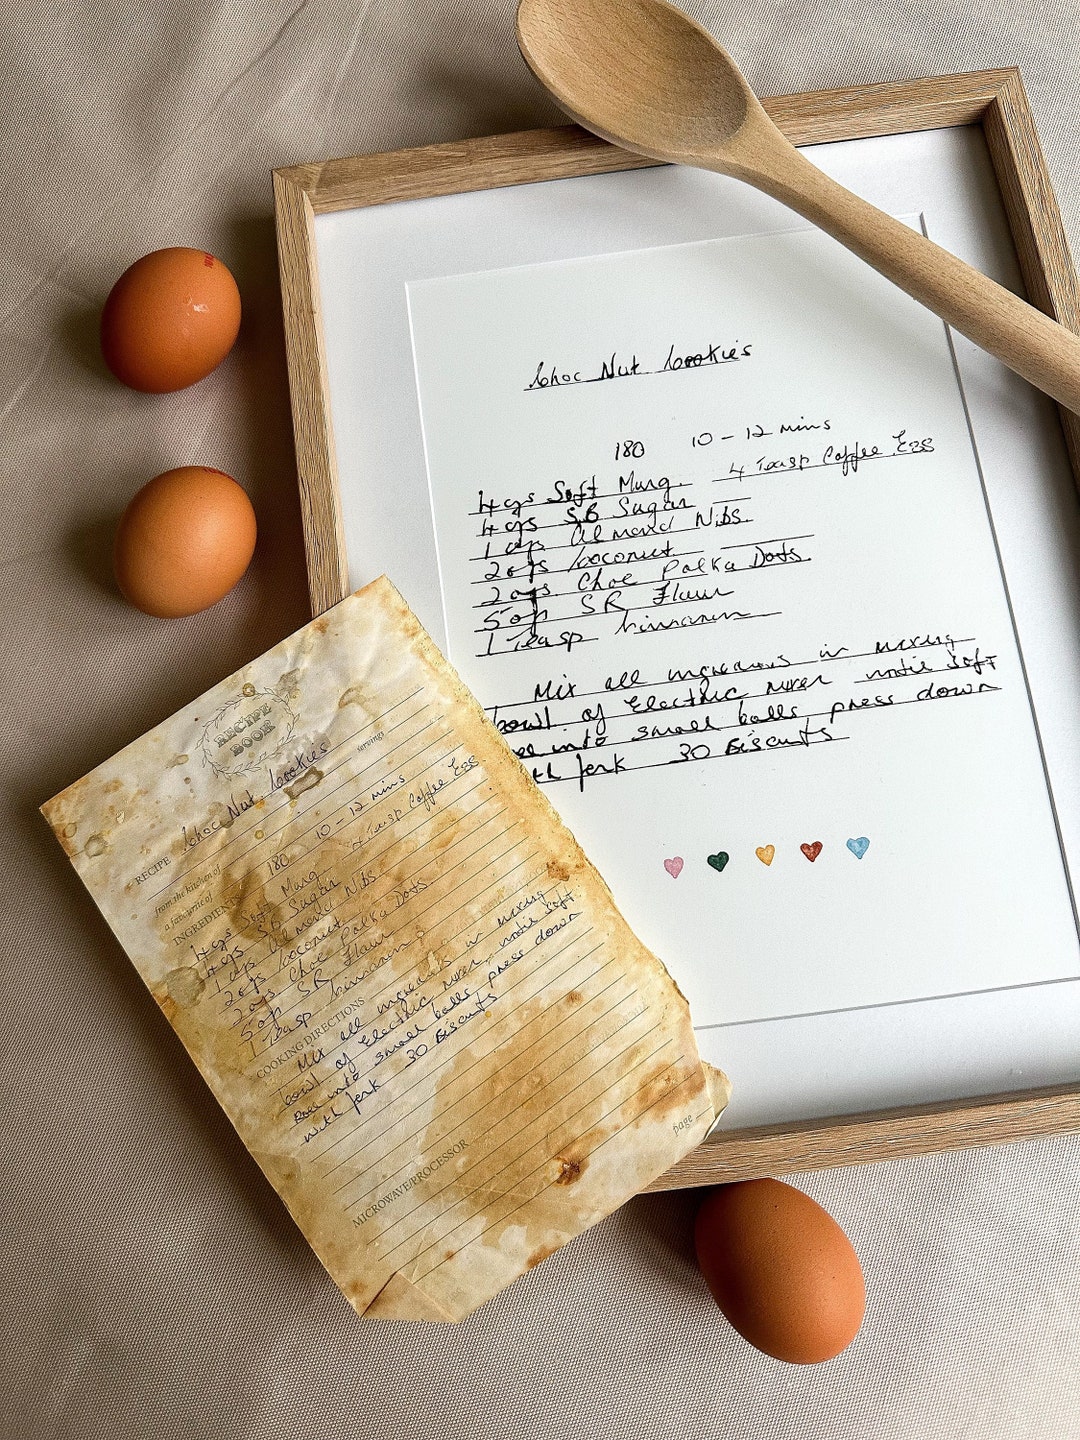 Choc Nut Cookies
180 10 - 12 mins
4 Teasp Coffee Ess
4 cgs Soft Marg.
4 cgs SB Sugar
1 cup Almond Nibs
2 ogs Coconut
2 ogs Choc Polka Dots
5 og SR Flour
1 Teasp Cinnamon
Mix all ingredients in mixing
bowl of Electric mixer until soft
into small balls, press down
fork 30 Biscuits
RECIPE BOOK
RECIPE Choc Nut Cookies
servings
from the kitchen of
a favourite of
180 10 - 12 mins
INGREDIENTS 4 Teasp Coffee Ess
4 cgs Soft Marg
4 cgs SB Sugar
1 cup Almond Nibs
2 ogs Coconut
2 ogs Choc Polka Dots
5 og SR Flour
1 Teasp Cinnamon
COOKING DIRECTIONS
Mix all ingredients in mixing
bowl of Electric mixer, until soft
Roll into small balls, press down
with fork 30 Biscuits
MICROWAVE/PROCESSOR
page